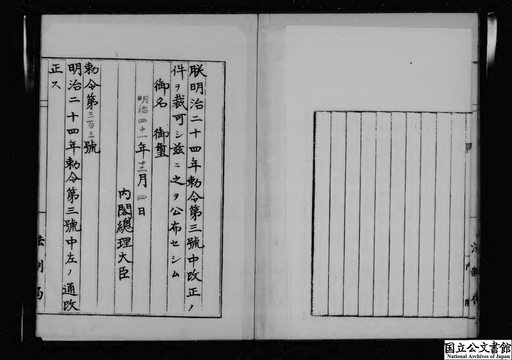 朕明治二十四年勅令第三號中改正ノ
件ヲ裁可シ茲ニ之ヲ公布セシム
御名 御璽
明治四十一年十二月四日
內閣總理大臣
勅令第三百三號
明治二十四年勅令第三號中左ノ通改
正ス
法制局
国立公文書館
National Archives of Japan